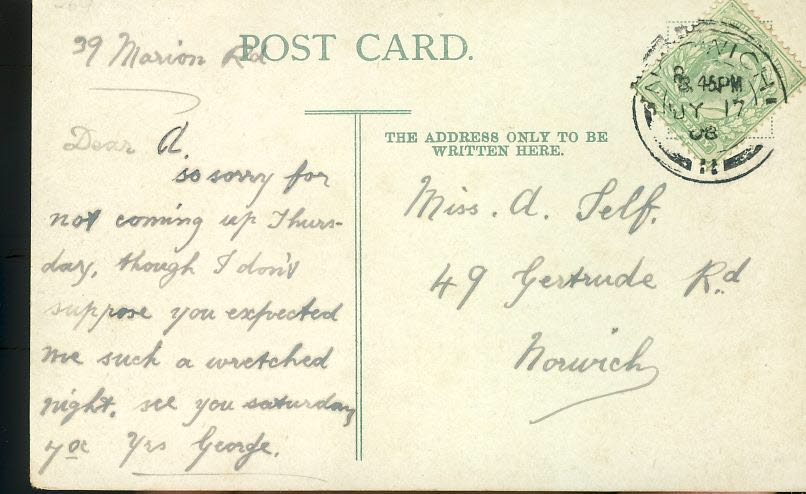 POST CARD.
39 Marion Rd
Dear A.
so sorry for
not coming up Thurs-
day, though I don't
suppose you expected
me such a wretched
night. see you saturday
Yrs George.
THE ADDRESS ONLY TO BE
WRITTEN HERE.
Miss. A. Self.
49 Gertrude Rd
Norwich
NORWICH
8.45PM
JY 17
08